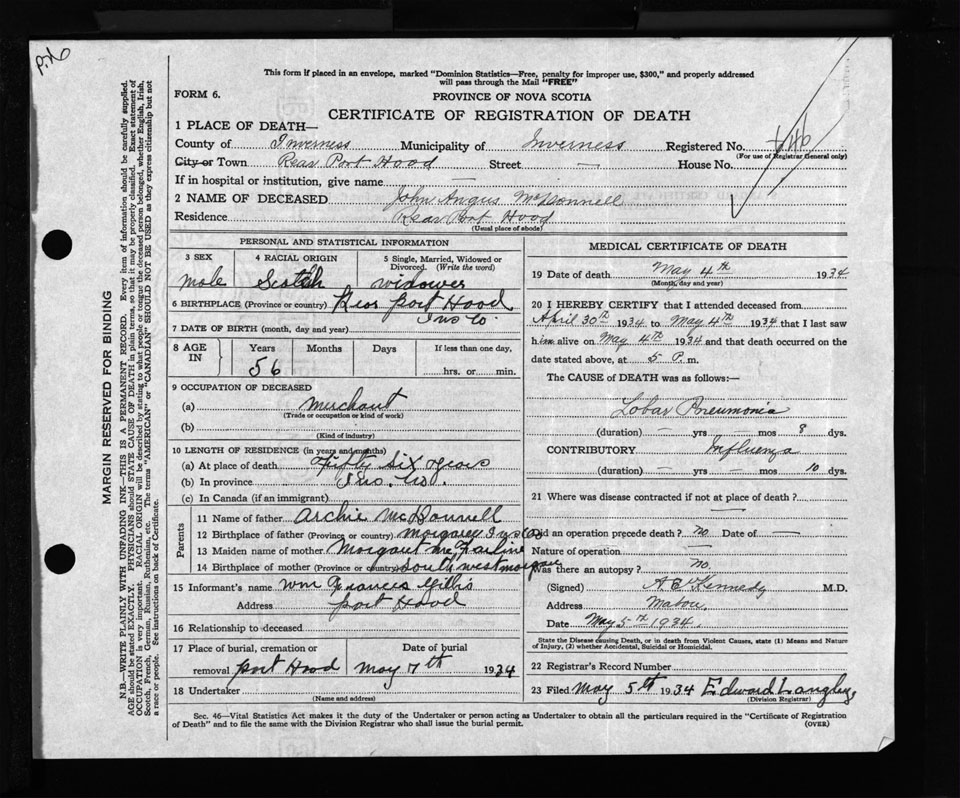 P.N.
This form if placed in an envelope, marked "Dominion Statistics—Free, penalty for improper use, $300," and properly addressed
will pass through the Mail "FREE"
FORM 6.
PROVINCE OF NOVA SCOTIA
CERTIFICATE OF REGISTRATION OF DEATH
1 PLACE OF DEATH—
County of Inverness Municipality of Inverness Registered No. 446
(For use of Registrar General only)
City or Town Rear Port Hood Street — House No.
If in hospital or institution, give name —
2 NAME OF DECEASED John Angus McDonnell
Residence Rear Port Hood
(Usual place of abode)
PERSONAL AND STATISTICAL INFORMATION
3 SEX 4 RACIAL ORIGIN 5 Single, Married, Widowed or
Divorced. (Write the word)
male Scotch widower
6 BIRTHPLACE (Province or country) Rear port Hood
Inv Co.
7 DATE OF BIRTH (month, day and year)
8 AGE IN Years Months Days If less than one day,
56 hrs. or min.
9 OCCUPATION OF DECEASED
(a) merchant
(Trade or occupation or kind of work)
(b)
(Kind of industry)
10 LENGTH OF RESIDENCE (in years and months)
(a) At place of death fifty six years
(b) In province Inv. Co.
(c) In Canada (if an immigrant)
Parents
11 Name of father Archie McDonnell
12 Birthplace of father (Province or country) margaree Inv Co
13 Maiden name of mother Margaret
14 Birthplace of mother (Province or country) South west margaree
15 Informant's name Wm Frances Gillis
Address port Hood
16 Relationship to deceased
17 Place of burial, cremation or Date of burial
removal port Hood may 7th 1934
18 Undertaker
(Name and address)
MEDICAL CERTIFICATE OF DEATH
19 Date of death May 4th 1934
(Month, day and year)
20 I HEREBY CERTIFY that I attended deceased from
April 30th 1934 to May 4th 1934 that I last saw
him alive on May 4th 1934 and that death occurred on the
date stated above, at 5 P. m.
The CAUSE of DEATH was as follows:—
Lobar Pneumonia
(duration) — yrs — mos 8 dys.
CONTRIBUTORY Influenza
(duration) — yrs — mos 10 dys.
21 Where was disease contracted if not at place of death?
—
Did an operation precede death? no Date of —
Nature of operation —
Was there an autopsy? no.
(Signed) Kennedy M.D.
Address Mabou
Date May 5th 1934.
State the Disease causing Death, or in death from Violent Causes, state (1) Means and Nature
of Injury, (2) whether Accidental, Suicidal or Homicidal.
22 Registrar's Record Number
23 Filed may 5th 1934 Edward Langley
(Division Registrar)
Sec. 46—Vital Statistics Act makes it the duty of the Undertaker or person acting as Undertaker to obtain all the particulars required in the "Certificate of Registration
of Death" and to file the same with the Division Registrar who shall issue the burial permit. (OVER)
MARGIN RESERVED FOR BINDING
N.B.—WRITE PLAINLY WITH UNFADING INK—THIS IS A PERMANENT RECORD. Every item of information should be carefully supplied.
AGE should be stated EXACTLY. PHYSICIANS should STATE CAUSE OF DEATH in plain terms, so that it may be properly classified. Exact statement of
OCCUPATION is very important. RACIAL ORIGIN will be described by stating to what people or tongue the deceased person belonged, whether English, Irish,
Scotch, French, German, Russian, Ruthenian, etc. The terms "AMERICAN" or "CANADIAN" SHOULD NOT BE USED as they express citizenship but not
a race or people. See instructions on back of Certificate.